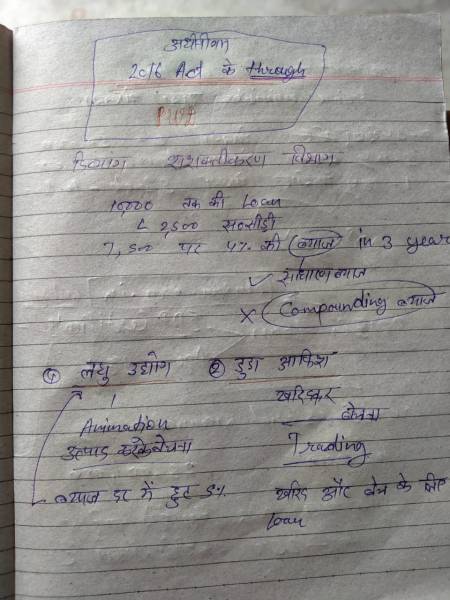 अधिनियम
2016 Act के through
दिव्यांग सशक्तीकरण विभाग
10,000 तक की Loan
2,500 सब्सीडी
7,500 पर 4% की ब्याज in 3 year
✓ साधारण ब्याज
× Compounding ब्याज
① लघु उद्योग
② डुडा आफिस
Animation
उत्पाद करके बेचना
खरिदकर
बेचना
Trading
ब्याज दर में छुट 5%
खरिद और बेच के लिए
Loan